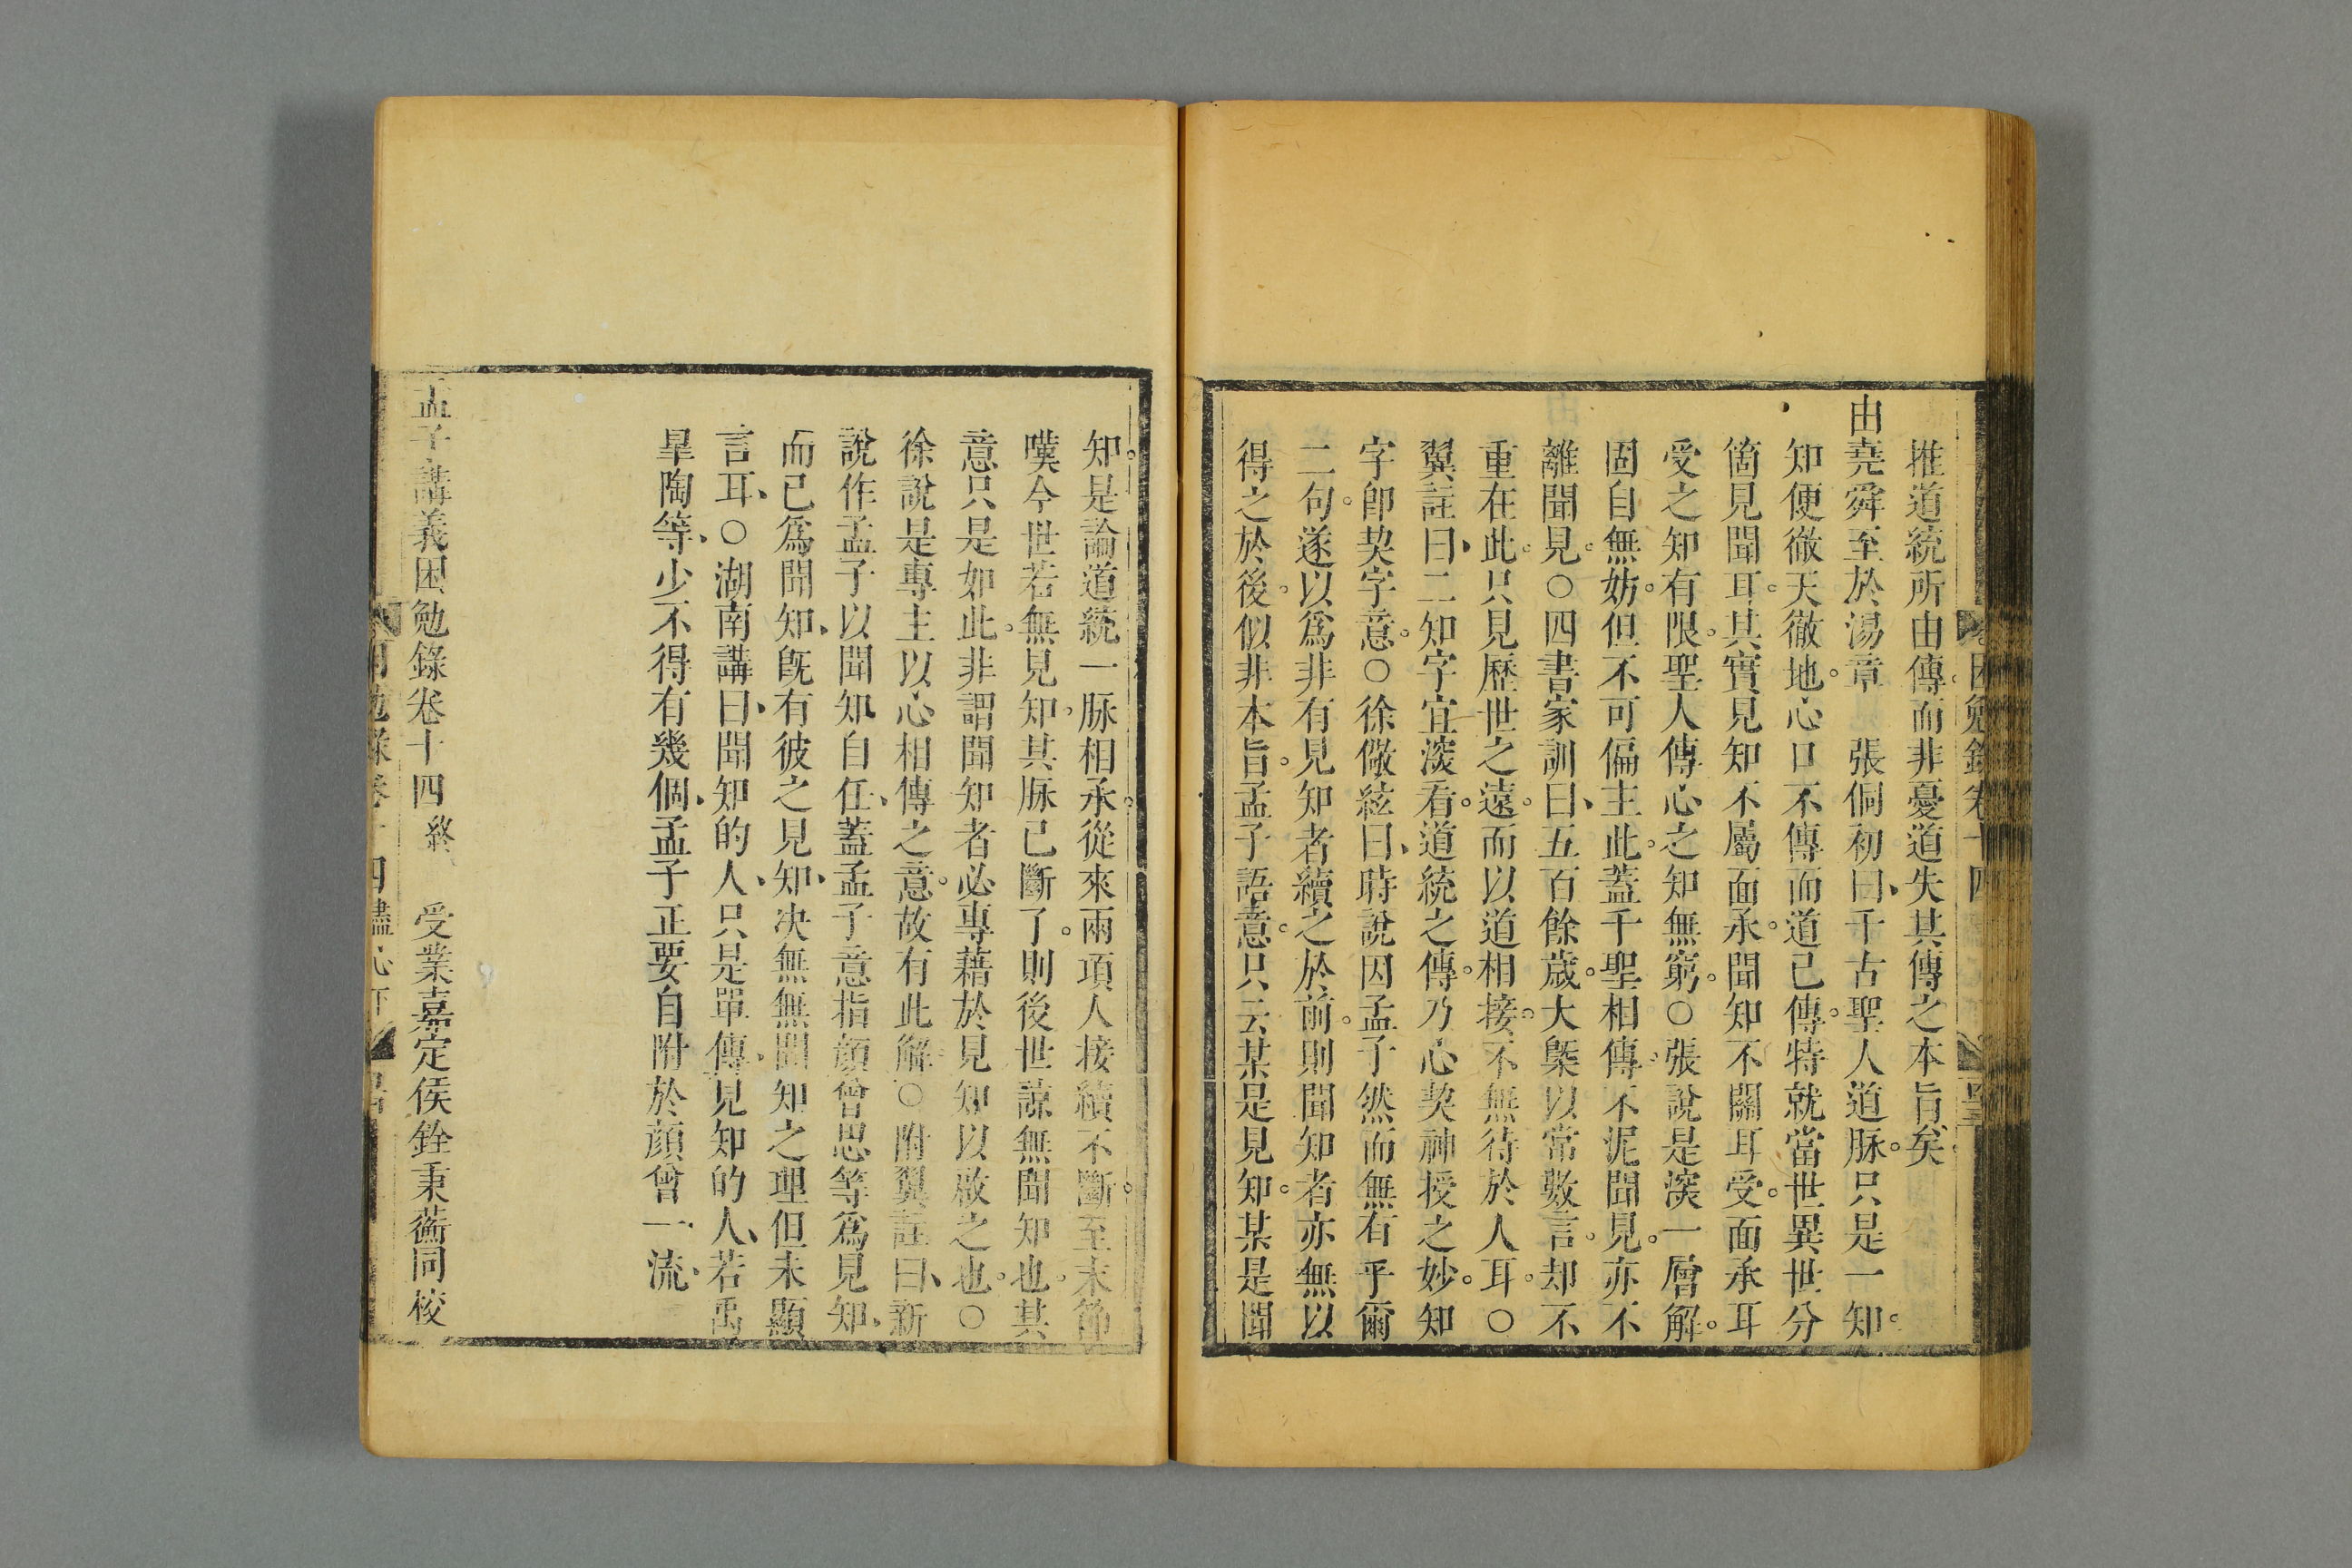 推道統所由傳而非憂道失其傳之本旨矣
由堯舜至於湯章 張侗初曰千古聖人道脉。只是一知。
知便徹天徹地。心口不傳而道已傳。特就當世異世分
箇見聞耳。其實見知不屬面承。聞知不關耳受。面承耳
受之知有限。聖人傳心之知無窮。○張說是深一層解。
固自無妨。但不可偏主此。蓋千聖相傳不泥聞見。亦不
離聞見。○四書家訓曰、五百餘歲。大槩以常數言。却不
重在此。只見歷世之遠。而以道相接。不無待於人耳。○
翼註曰、二知字宜深看。道統之傳。乃心契神授之妙。知
字卽契字意。○徐儆絃曰、時說因孟子然而無有乎爾
二句。遂以爲非有見知者續之於前。則聞知者亦無以
得之於後。似非本旨。孟子語意。只云某是見知。某是聞
知。是論道統一脉相承。從來兩項人接續不斷。至末節
嘆今世若無見知、其脉已斷了。則後世諒無聞知也。其
意只是如此。非謂聞知者必專藉於見知以啟之也。○
徐說是專主以心相傳之意。故有此解○附翼註曰、新
說作孟子以聞知自任、蓋孟子意指顔曾思等爲見知、
而已爲聞知、旣有彼之見知、决無無聞知之理但未顯
言耳、○湖南講曰、聞知的人、只是單傳、見知的人、若禹
皐陶等、少不得有幾個、孟子正要自附於顔曾一流、
孟子講義困勉錄卷十四終 受業嘉定侯銓秉蘅同校